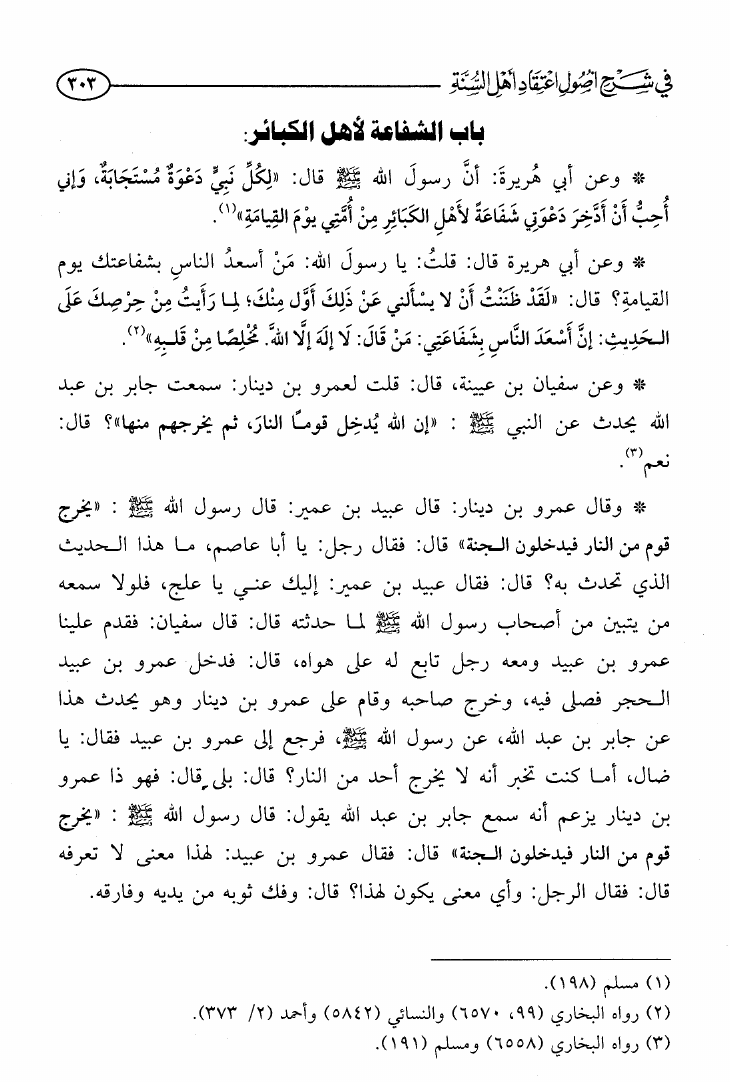 في شرح أصول اعتقاد أهل السنة
٣٠٣
باب الشفاعة لأهل الكبائر:
* وعن أبي هُريرةَ: أنَّ رسولَ الله ﷺ قال: «لِكُلِّ نَبِيٍّ دَعْوَةٌ مُسْتَجَابَةٌ، وَإِني
أُحِبُّ أَنْ أَدَّخِرَ دَعْوَتِي شَفَاعَةً لأَهْلِ الكَبَائِرِ مِنْ أُمَّتِي يوْمَ القِيامَةِ»(١).
* وعن أبي هريرة قال: قلتُ: يا رسولَ الله: مَنْ أسعدُ الناسِ بشفاعتك يوم
القيامةِ؟ قال: «لَقَدْ ظَنَنْتُ أَنْ لا يسْأَلني عَنْ ذَلِكَ أَوَّل مِنْكَ؛ لِما رَأَيتُ مِنْ حِرْصِكَ عَلَى
الحَدِيثِ: إنَّ أَسْعَدَ النَّاسِ بِشَفَاعَتِي: مَنْ قَالَ: لَا إِلَهَ إِلَّا اللهُ. مُخْلِصًا مِنْ قَلْبِهِ»(٢).
* وعن سفيان بن عيينة، قال: قلت لعمرو بن دينار: سمعت جابر بن عبد
الله يحدث عن النبي ﷺ : «إن الله يُدخِل قومًا النارَ، ثم يخرجهم منها»؟ قال:
نعم(٣).
* وقال عمرو بن دينار: قال عبيد بن عمير: قال رسول الله ﷺ : «يخرج
قوم من النار فيدخلون الجنة» قال: فقال رجل: يا أبا عاصم، ما هذا الحديث
الذي تحدث به؟ قال: فقال عبيد بن عمير: إليك عني يا علج، فلولا سمعه
من يتبين من أصحاب رسول الله ﷺ لما حدثته قال: قال سفيان: فقدم علينا
عمرو بن عبيد ومعه رجل تابع له على هواه، قال: فدخل عمرو بن عبيد
الحجر فصلى فيه، وخرج صاحبه وقام على عمرو بن دينار وهو يحدث هذا
عن جابر بن عبد الله، عن رسول الله ﷺ، فرجع إلى عمرو بن عبيد فقال: يا
ضال، أما كنت تخبر أنه لا يخرج أحد من النار؟ قال: بلى قال: فهو ذا عمرو
بن دينار يزعم أنه سمع جابر بن عبد الله يقول: قال رسول الله ﷺ : «يخرج
قوم من النار فيدخلون الجنة» قال: فقال عمرو بن عبيد: لهذا معنى لا تعرفه
قال: فقال الرجل: وأي معنى يكون لهذا؟ قال: وفك ثوبه من يديه وفارقه.
(١) مسلم (١٩٨).
(٢) رواه البخاري (٩٩، ٦٥٧٠) والنسائي (٥٨٤٢) وأحمد (٢/ ٣٧٣).
(٣) رواه البخاري (٦٥٥٨) ومسلم (١٩١).